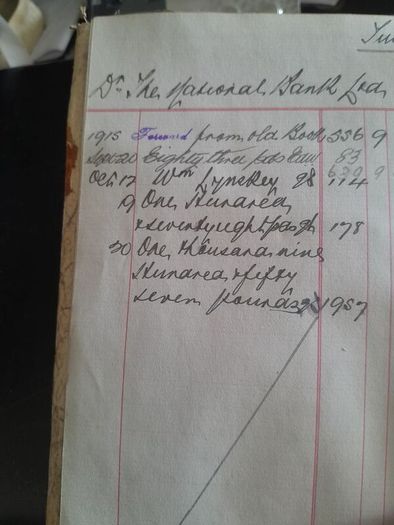 Dr. The National Bank Ltd
1915 Forward from old Book 336 9
Sept 20 Eighty three pds 83
639 9
Oct 12 Wm Lynskey 98 114
9 One Hundred
& seventy eight pds 178
20 One thousand nine
Hundred & fifty
seven pounds 1957